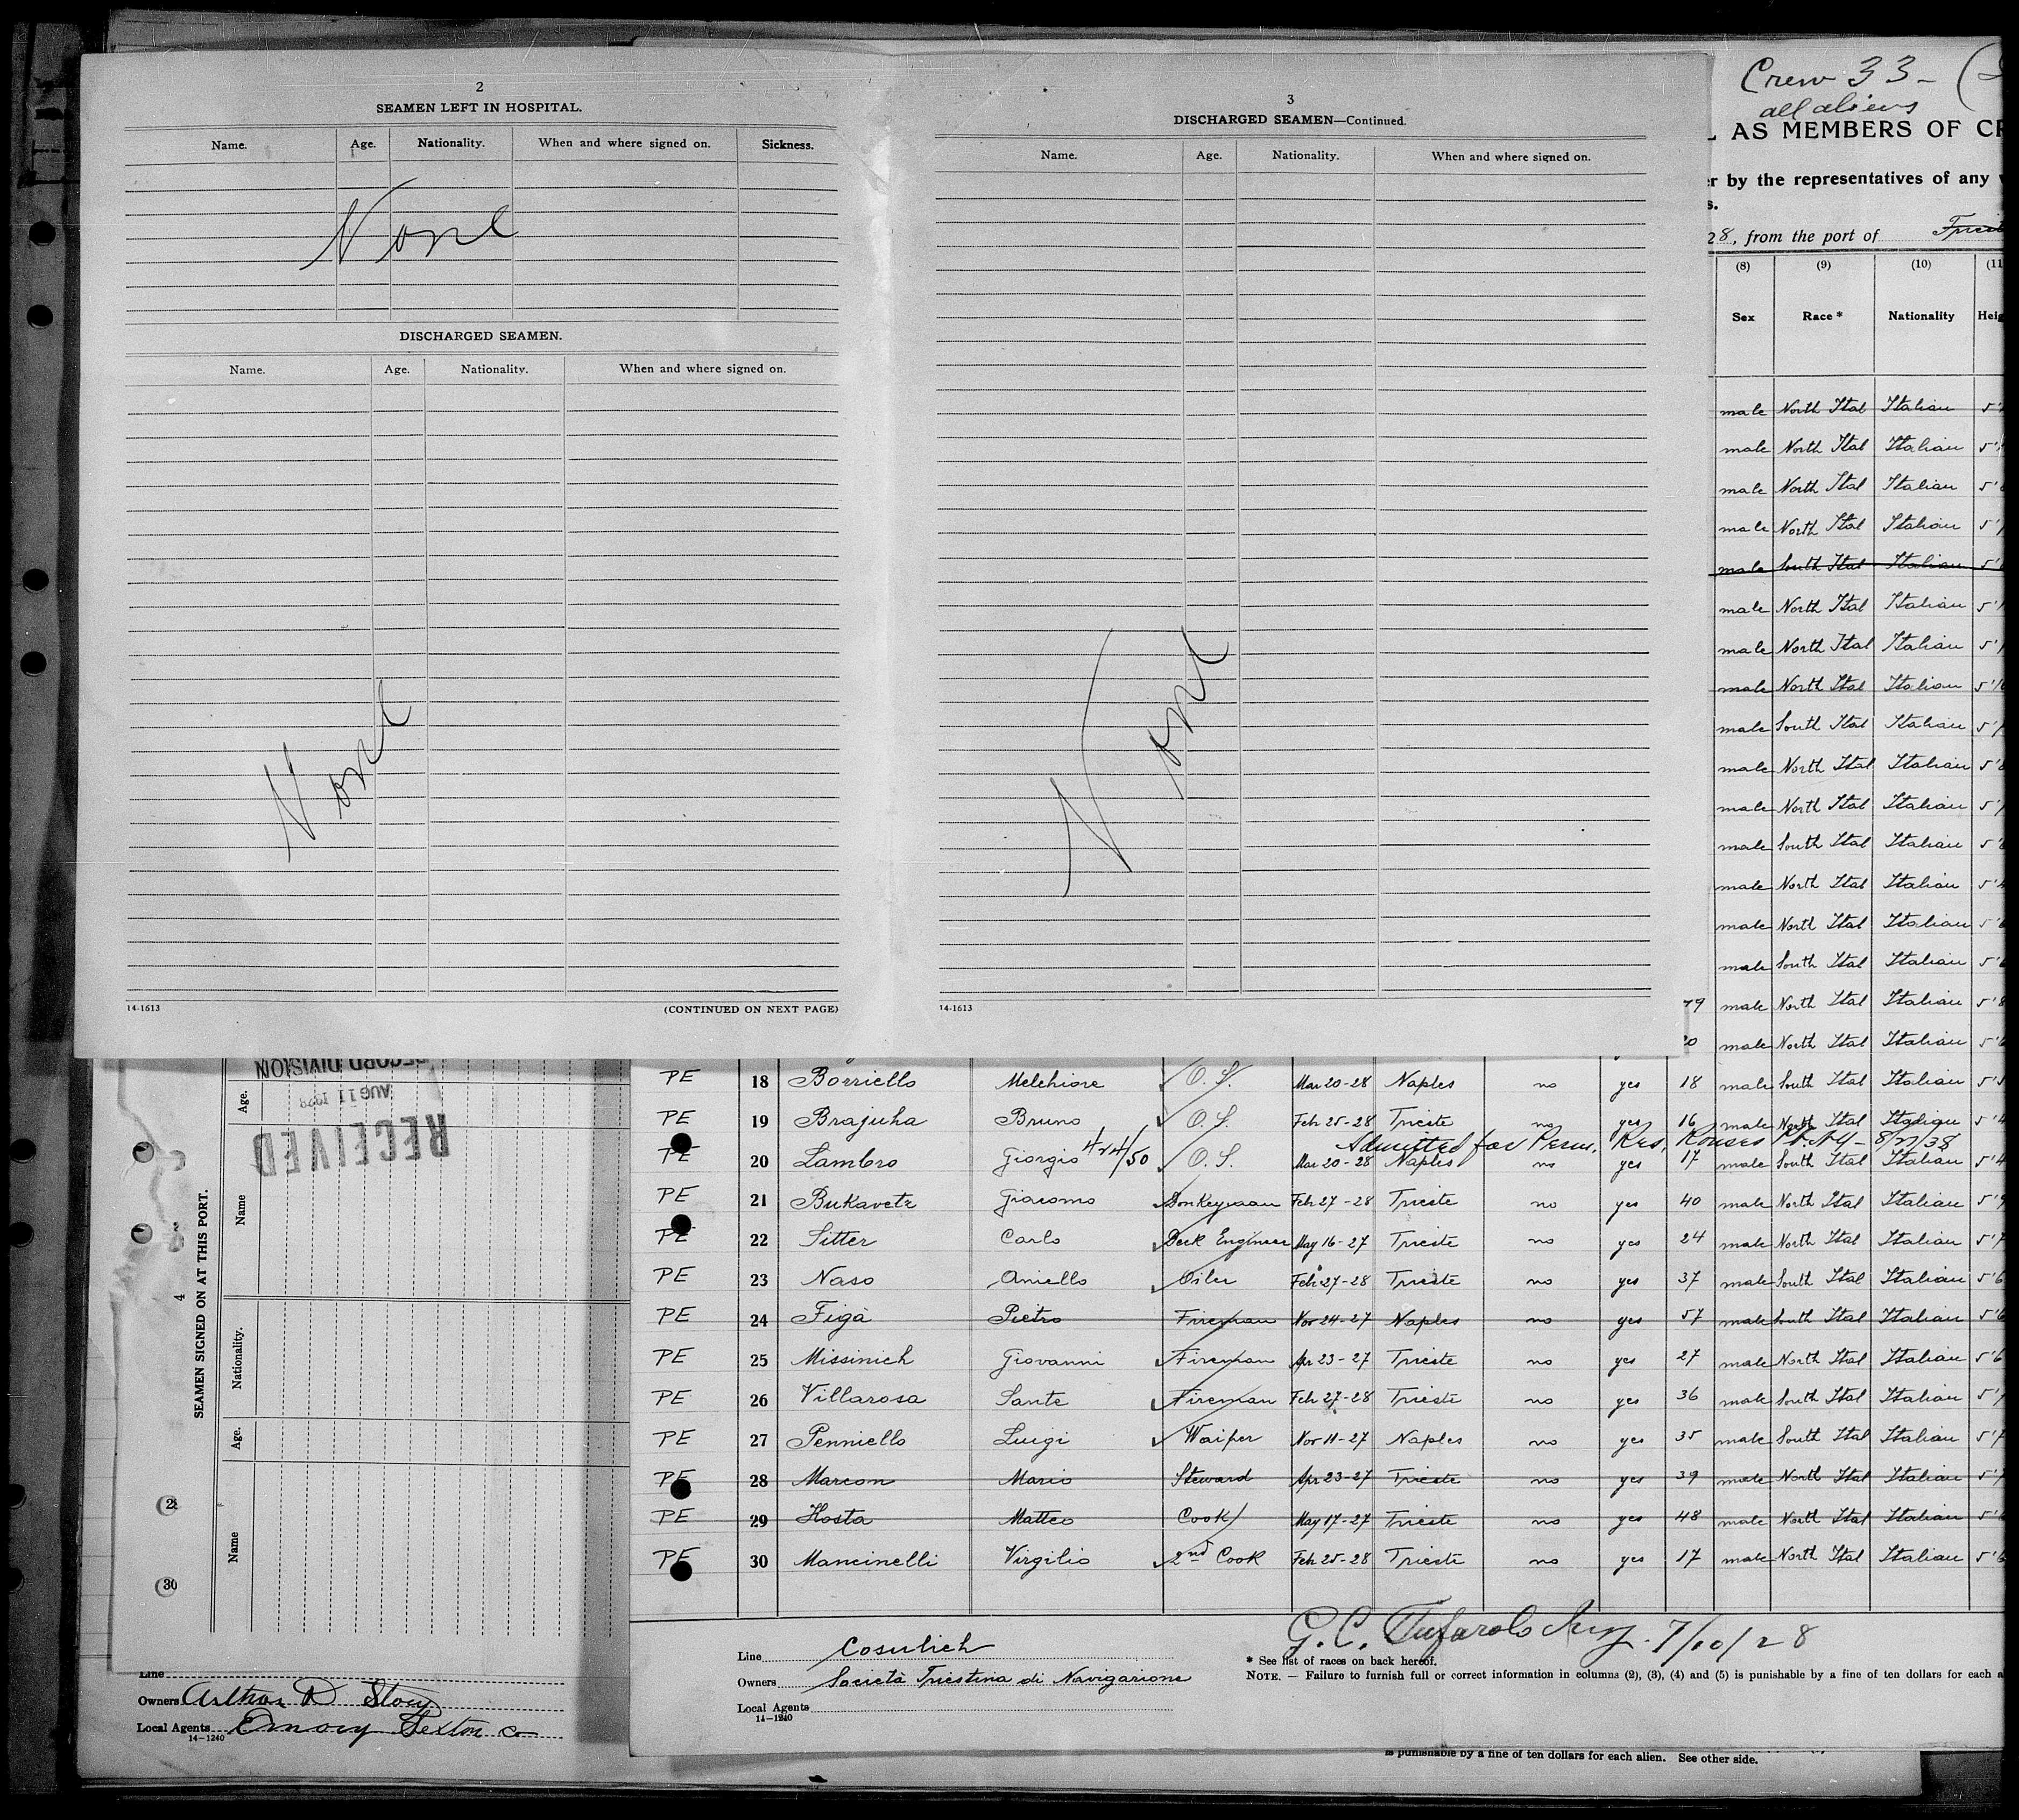 2
SEAMEN LEFT IN HOSPITAL.
Name. Age. Nationality. When and where signed on. Sickness.
None
DISCHARGED SEAMEN.
Name. Age. Nationality. When and where signed on.
None
14-1613 (CONTINUED ON NEXT PAGE)
3
DISCHARGED SEAMEN—Continued.
Name. Age. Nationality. When and where signed on.
None
14-1613
Crew 33 - (
all aliens
L AS MEMBERS OF CR
er by the representatives of any v
s.
28, from the port of
(8) (9) (10) (11
Sex Race * Nationality Heig
male North Ital Italian 5'
male North Ital Italian 5'
male North Ital Italian 5'
male North Ital Italian 5'
male South Ital Italian 5'
male North Ital Italian 5'
male North Ital Italian 5'
male North Ital Italian 5'10
male South Ital Italian 5'7
male North Ital Italian 5'8
male North Ital Italian 5'7
male South Ital Italian 5'8
male North Ital Italian 5'4
male North Ital Italian 5'6
male South Ital Italian 5'6
79 male North Ital Italian 5'8
20 male North Ital Italian 5'6
PE 18 Borriello Melchiore O.S. Mar 20-28 Naples no yes 18 male South Ital Italian 5'5
PE 19 Brajuha Bruno O.S. Feb 25-28 Trieste no yes 16 male North Ital Italian 5'4
4/24/50 Admitted for Perm. Res. P.L. N.Y - 8/21/38
PE 20 Lambro Giorgio O.S. Mar 20-28 Naples no yes 17 male South Ital Italian 5'4
PE 21 Bukavetz Giacomo Donkeyman Feb 27-28 Trieste no yes 40 male North Ital Italian 5'9
PE 22 Sitter Carlo Deck Engineer May 16-27 Trieste no yes 24 male North Ital Italian 5'7
PE 23 Naso Aniello Oiler Feb 27-28 Trieste no yes 37 male South Ital Italian 5'6
PE 24 Figà Pietro Fireman Nov 24-27 Naples no yes 57 male South Ital Italian 5'6
PE 25 Missinich Giovanni Fireman Apr 23-27 Trieste no yes 27 male North Ital Italian 5'6
PE 26 Villarosa Sante Fireman Feb 27-28 Trieste no yes 36 male South Ital Italian 5'7
PE 27 Penniello Luigi Waiper Nov 11-27 Naples no yes 35 male South Ital Italian 5'7
PE 28 Marcon Mario Steward Apr 23-27 Trieste no yes 39 male North Ital Italian 5'7
PE 29 Hosta Matteo Cook May 17-27 Trieste no yes 48 male North Ital Italian 5'6
PE 30 Mancinelli Virgilio 2nd Cook Feb 25-28 Trieste no yes 17 male North Ital Italian 5'6
G. C. Tufarolo 7/10/28
Line Cosulich
Owners Società Triestina di Navigazione
Local Agents
14-1240
* See list of races on back hereof.
NOTE. — Failure to furnish full or correct information in columns (2), (3), (4) and (5) is punishable by a fine of ten dollars for each a
is punishable by a fine of ten dollars for each alien. See other side.
RECORD DIVISION
AUG 11 1928
RECEIVED
4
SEAMEN SIGNED ON AT THIS PORT.
Name Age. Nationality. Name Age.
28
30
Line
Owners Arthur D Story
Local Agents Emory Sexton Co
14-1240